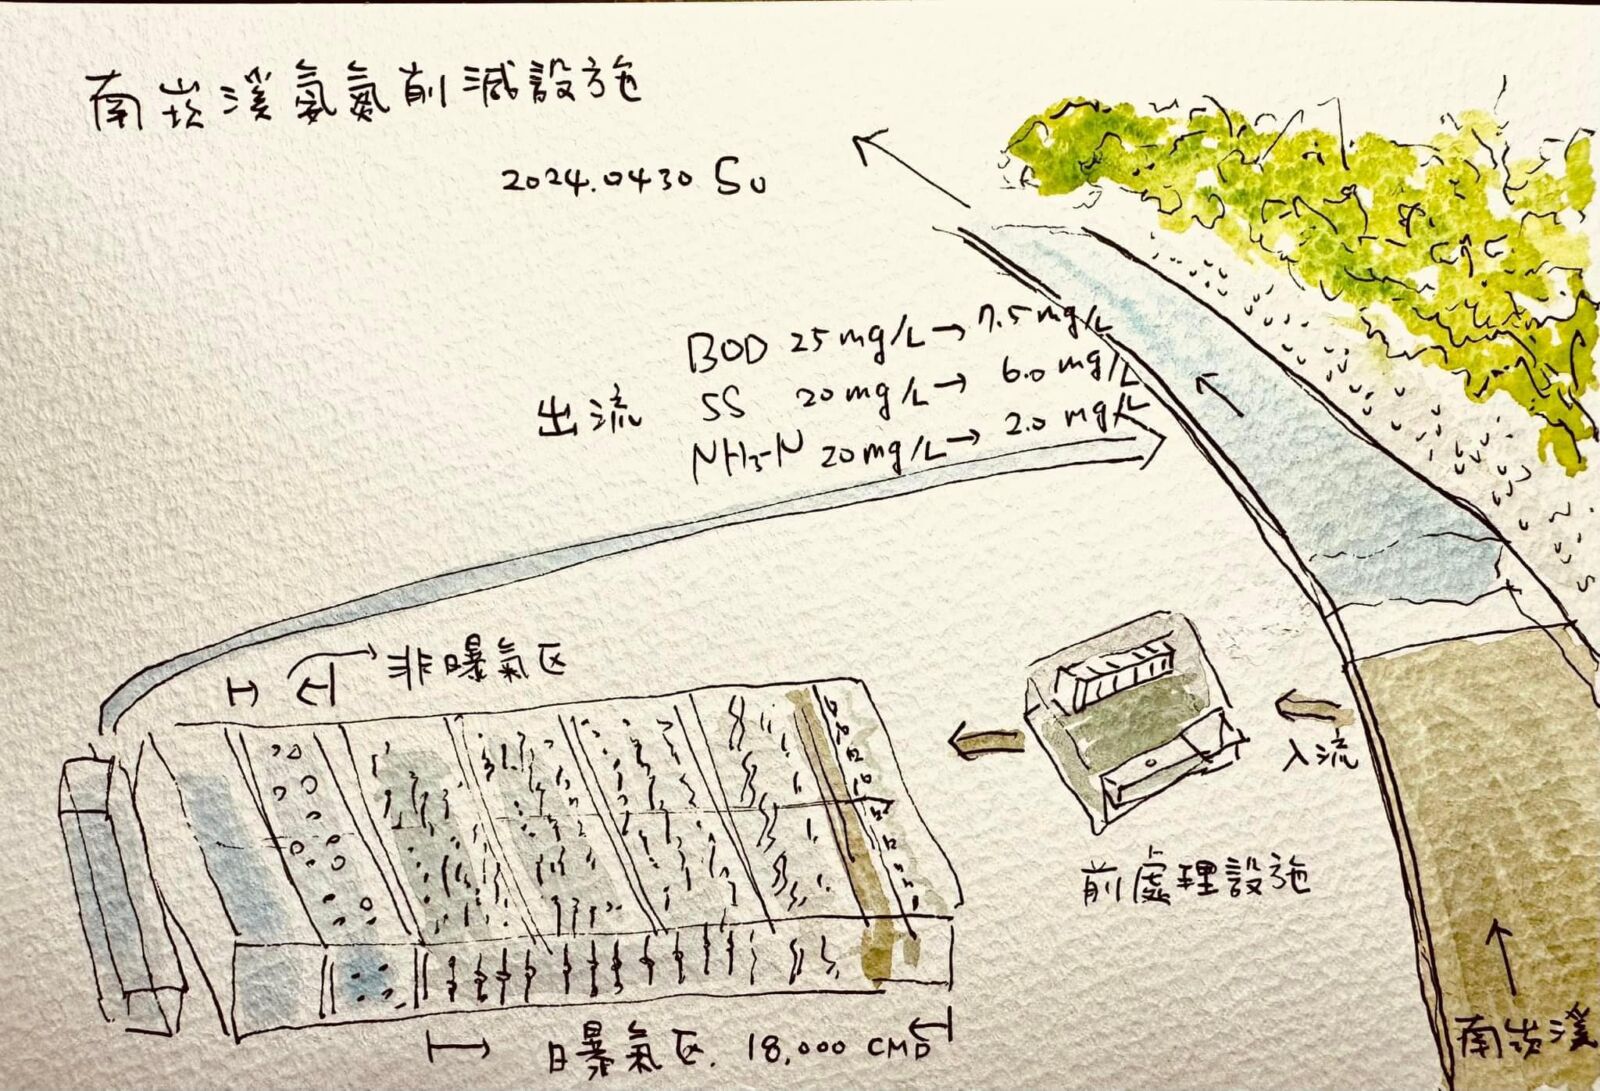 南崁溪氨氮削減設施
2024.0430 Su
出流
BOD 25 mg/L → 7.5 mg/L
SS 20 mg/L → 6.0 mg/L
NH3-N 20 mg/L → 2.0 mg/L
非曝氣区
入流
前處理設施
曝氣区. 18,000 CMD
南崁溪